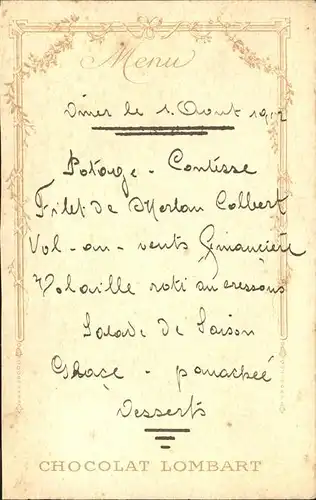 Menu
Diner le 1. Aout 1912
Potage - Contesse
Filet de Merlan Colbert
Vol-au-vents financière
Volaille roti au cressons
Salade de Saison
Glace - panachée
Desserts
CHOCOLAT LOMBART